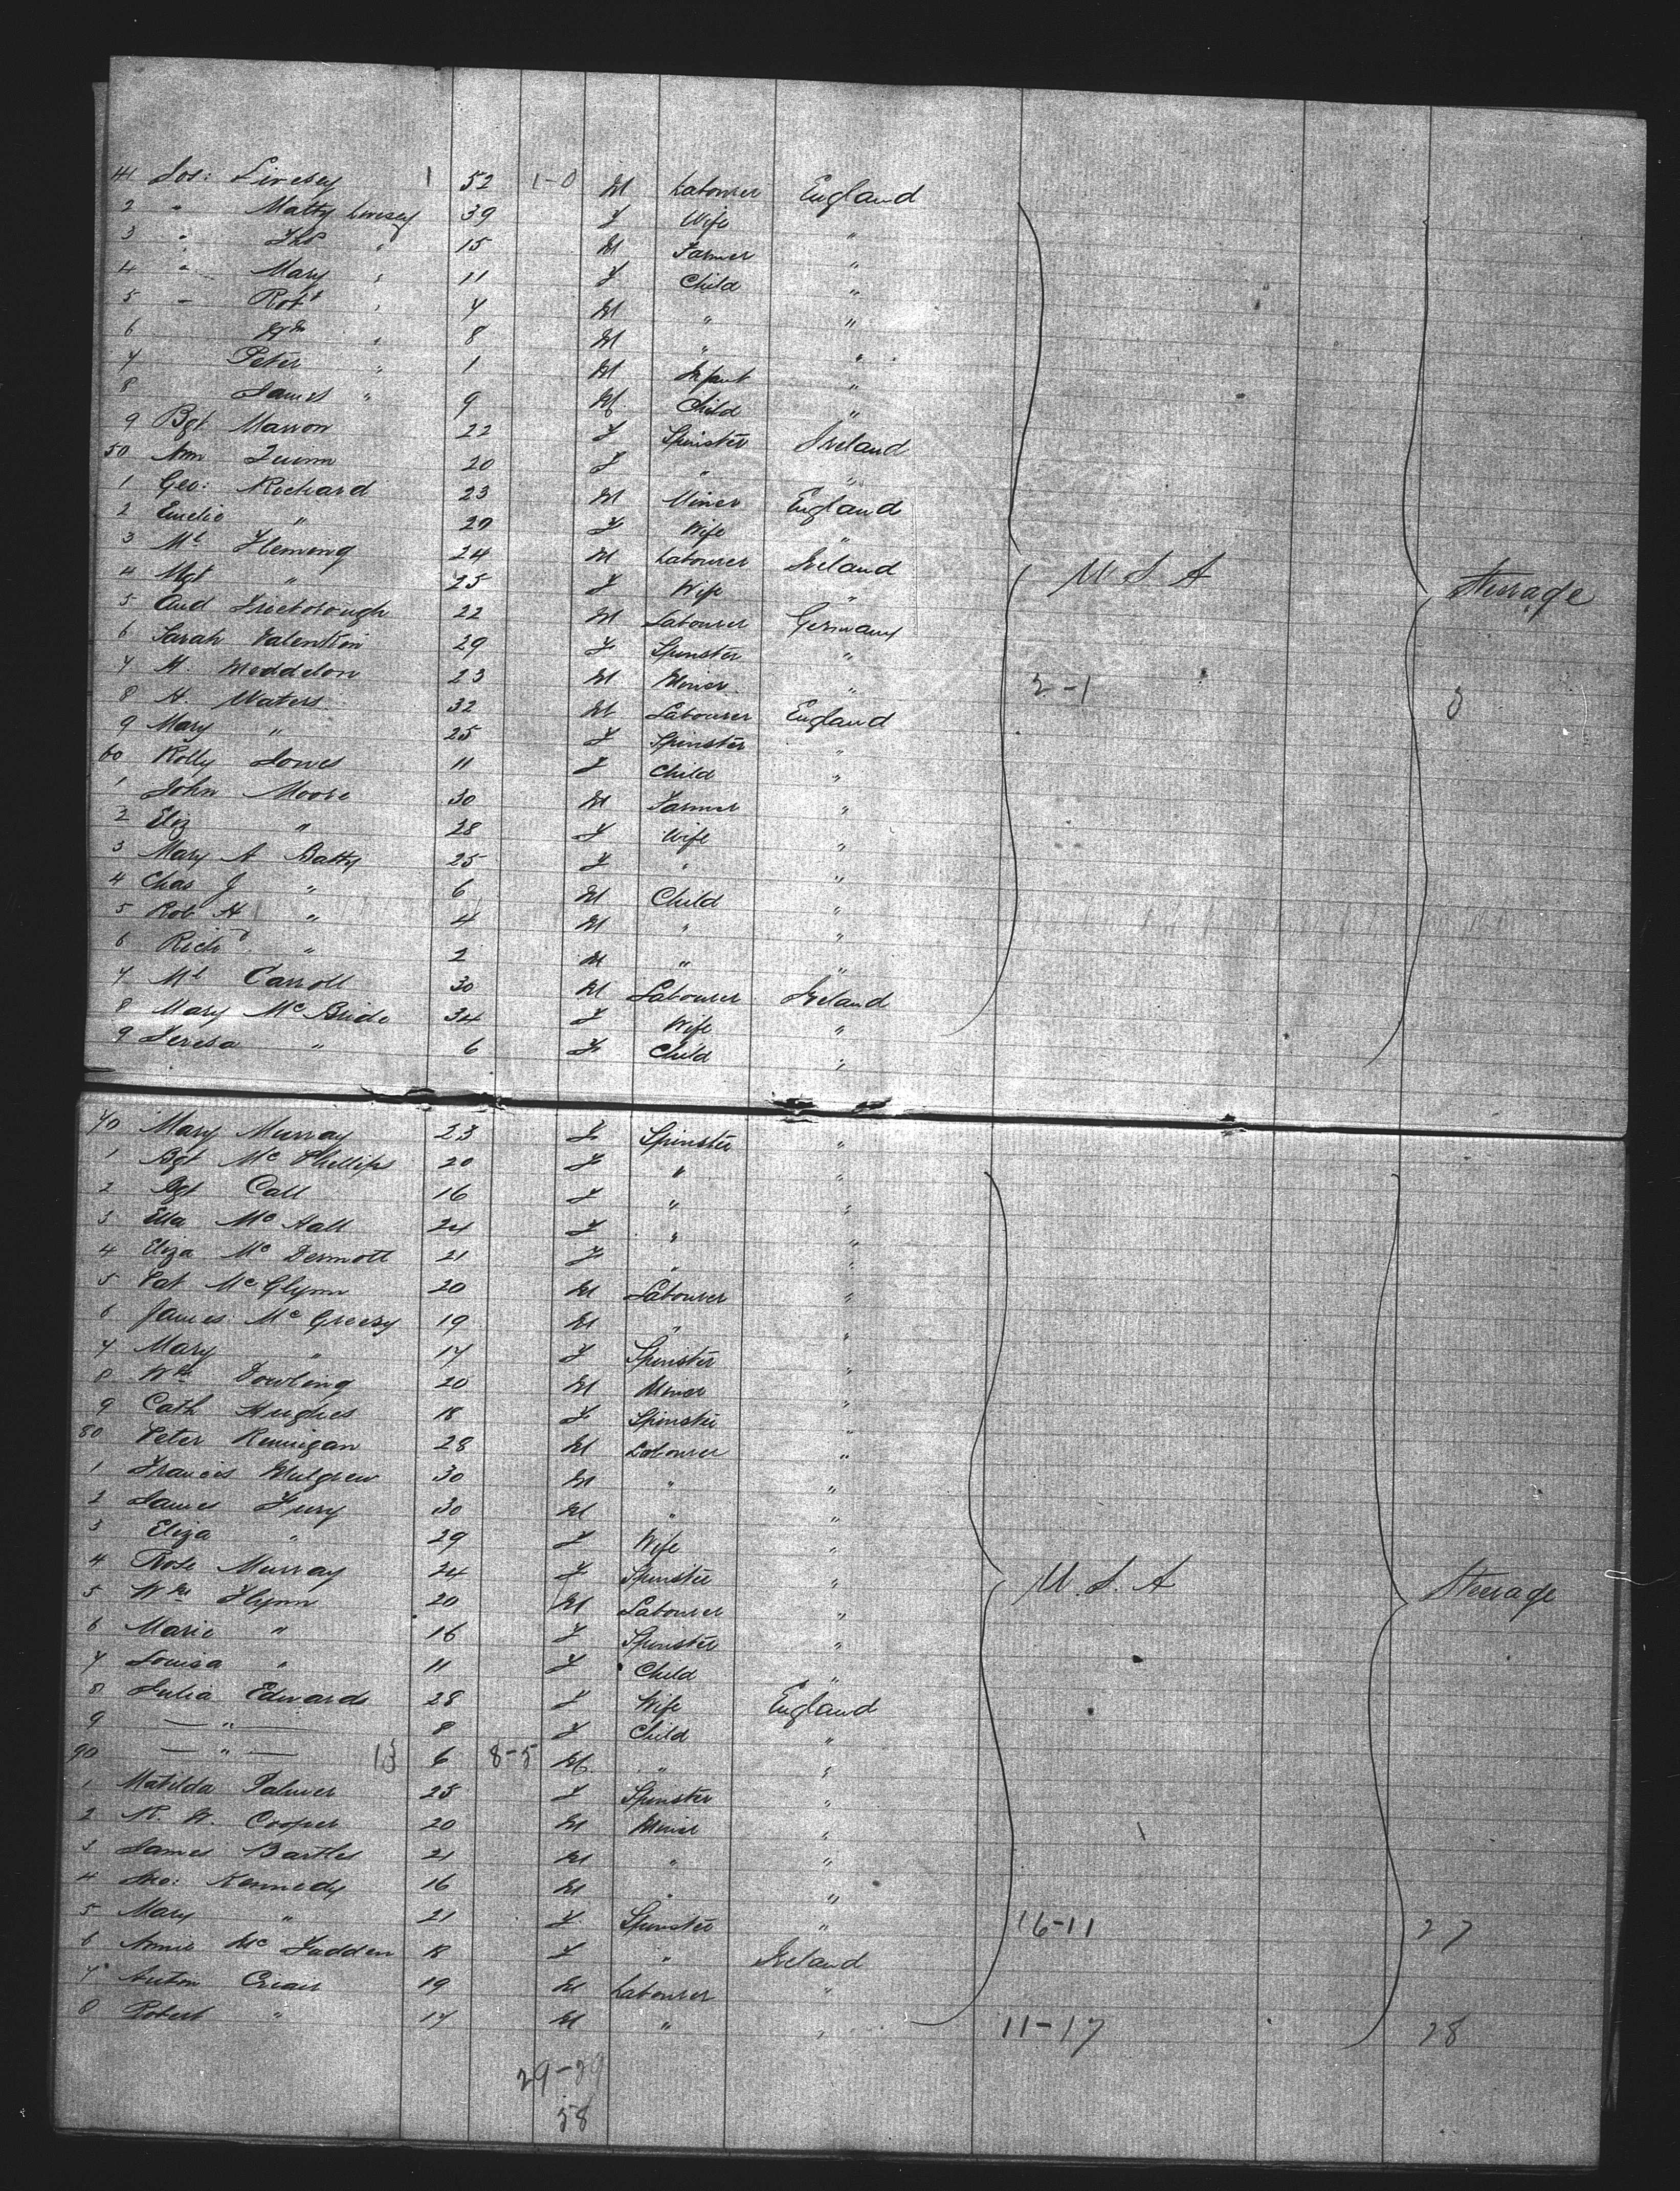 41 Jos: Livesey 1 52 1-0 M Labourer England
2 " Matty Livesey 39 F Wife "
3 " Thos " 15 M Farmer "
4 " Mary " 11 F Child "
5 " Robt " 4 M " "
6 Wm " 8 M " "
7 Peter " 1 M Infant "
8 James " 9 M Child "
9 Bgt Marron 22 F Spinster Ireland
50 Ann Quinn 20 F " "
1 Geo: Richard 23 M Miner England
2 Emelie " 27 F Wife "
3 Ml Fleming 24 M Labourer Ireland
4 Mgt " 25 F Wife " U. S. A Steerage
5 22 M Labourer Germany
6 Sarah Valentin 29 F Spinster "
7 H. Meddelon 23 M Miner " 2-1 3
8 H. Waters 32 M Labourer England
9 Mary " 25 F Spinster "
60 Rolly Jones 11 F Child "
1 John Moore 30 M Farmer "
2 Eliz " 28 F Wife "
3 Mary A Batty 25 F " "
4 Chas J " 6 M Child "
5 Rob H " 4 M " "
6 Richd " 2 M " "
7 Ml Carroll 30 M Labourer Ireland
8 Mary McBride 34 F Wife "
9 Teresa " 6 F Child "
70 Mary Murray 23 F Spinster "
1 Bgt McPhillips 20 F " "
2 Bgt Call 16 F " "
3 Ella McHall 24 F " "
4 Eliza McDermott 21 F " "
5 Pat McGlynn 20 M Labourer "
6 James McGreesy 19 M " "
7 Mary " 17 F Spinster "
8 Wm Dowling 20 M Miner "
9 Cath Hughes 18 F Spinster "
80 Peter Rennigan 28 M Labourer "
1 Francis Mulgrew 30 M " "
2 James Fury 30 M " "
3 Eliza " 29 F Wife "
4 Rose Murray 24 F Spinster " U. S. A Steerage
5 Wm Flynn 20 M Labourer "
6 Marie " 16 F Spinster "
7 Louisa " 11 F Child "
8 Julia Edwards 28 F Wife England
9 — " — 8 F Child "
90 — " — 13 6 8-5 M " "
1 Matilda Palmer 25 F Spinster "
2 R. W. Cooper 20 M Miner "
3 James Bartles 21 M " "
4 Kennedy 16 M " "
5 Mary " 21 F Spinster " 16-11 27
6 Annie McFadden 18 F " Ireland
7 Anton Crean 19 M Labourer "
8 Robert " 17 M " " 11-17 28
29-29
58